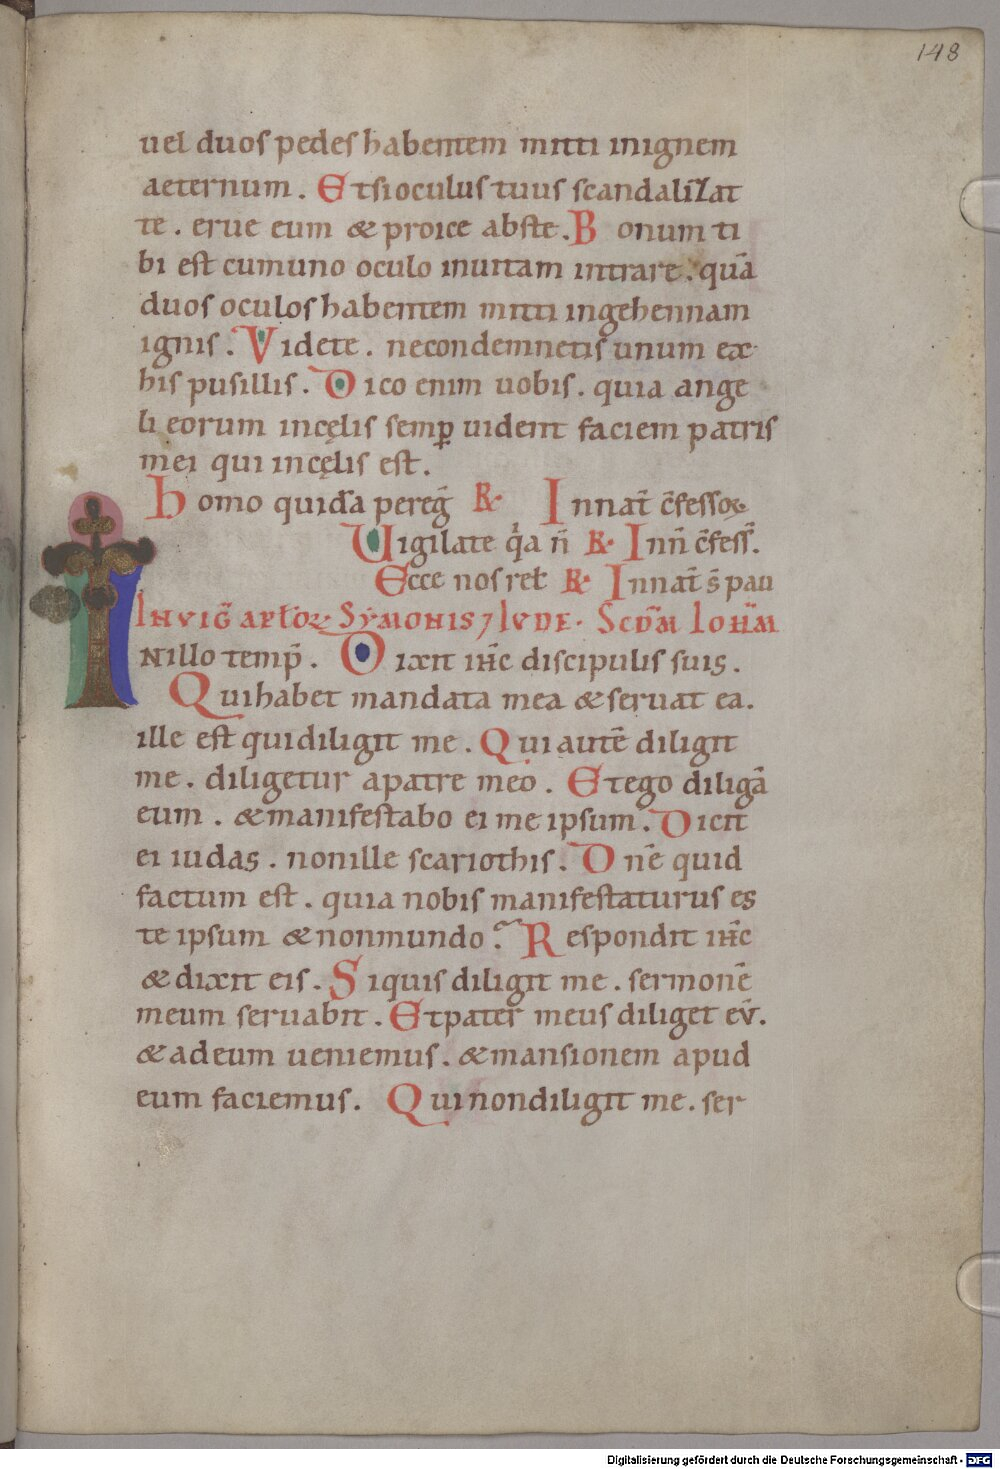 148
uel duos pedes habentem mitti inignem
aeternum. Etsioculus tuus scandalizat
te. erue eum & proice abste. Bonum ti
bi est cumuno oculo inuitam intrare. quā
duos oculos habentem mitti ingehennam
ignis. Videte. necondemnetis unum ex
his pusillis. Dico enim uobis. quia ange
li eorum incęlis semꝑ uident faciem patris
mei qui incęlis est.
Homo quida peregͫ R. Innat̄ c̄fessoꝝ
Uigilate q̇a n̄ R. Inn̄ c̄fess̄.
Ecce nos rel R. Innat̄ s̄ pau
INVIḠ APŁOꝜ SYMONIS ⁊ IVDE. SCD̄M IOH̄M
INillo temp̄. Dixit ih̄c discipulis suis.
Quihabet mandata mea & seruat ea.
ille est quidiligit me. Qui autē diligit
me. diligetur apatre meo. Etego diligā
eum. & manifestabo ei me ipsum. Dicit
ei iudas. nonille scariothis. Dnē quid
factum est. quia nobis manifestaturus es
te ipsum & nonmundo? Respondit ih̄c
& dixit eis. Siquis diligit me. sermonē
meum seruabit. Etpater meus diliget eū.
& adeum ueniemus. & mansionem apud
eum faciemus. Quinondiligit me. ser
Digitalisierung gefördert durch die Deutsche Forschungsgemeinschaft - DFG